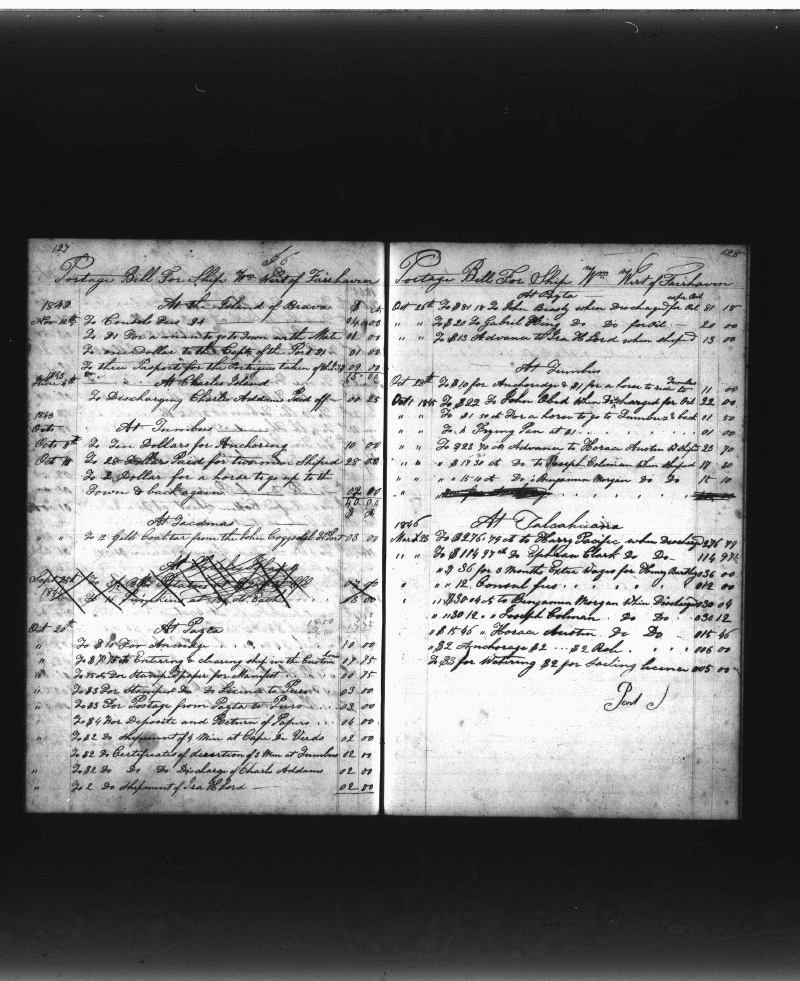 127
Portage Bill For Ship Wm Wirt of Fairhaven
1842 At the Island of Brava $ cts
Nov 12th To Consuls Fees $4 04 00
To $1 For a man to go to Town with Mate 01 00
To one Dollar to the Capt. of the Port $1 01 00
To three Passports for the Portugues taken 09 00
15 00
1843
June 4th At Charles Island
To Discharging Charles Addams Paid off 00 25
1843
Oct At Tumbus
Oct 8th To Ten Dollars for Anchoring 10 00
Oct 10 To 28 Dollars Paid for two men Shiped 28 00
To 2 Dollar for a horse to go up to the
Town & back again 02 00
40 00
$ cts
At Tacamas
To 12 Galls Coal tar from the John Coggeshall 03 00
Sept 25th
1844
Oct 20th At Payta
" To $10 For Ancorage 10 00
" To $7.75 cts Entering & clearing ship in the Custom 07 75
" To 75 cts For Stampd paper for Manifest 00 75
" To $3 For Stamped Do Do Licence to Puro 03 00
" To $3 For Postage from Payta to Puro 03 00
" To $4 For Deposite and Return of Papers 04 00
" To $2 Do Shipment of 4 Men at Cape De Verds 02 00
To $2 Do Certificates of desertion of 3 Men at Tumbus 02 00
" To $2 Do Do Do Discharge of Charls Addams 02 00
" To 2 Do Shipment of Ira H Lord 02 00
128
Portage Bill For Ship Wm Wirt of Fairhaven
At Payta
Oct 25th To $81 18 To John Beasly when Discharged for Oil 81 18
" " To $21 To Gabriel King Do Do for Oil 21 00
" " To $13 Advance to Ira H Lord when shiped 13 00
At Tumbus
Oct 28th To $10 for Anchorage & $1 for a horse to send to Tumbus 11 00
Oct 1 1845 To $22 To John Obed when Discharged for Oil 22 00
" " To $1 50 ct For a horse to go to Tumbus & back 01 50
" " To A Frying Pan at $1 01 00
" " To $23 70 cts Advance to Horace Austin W Shiped 23 70
" " " $17 30 ct Do to Joseph Coleman When shiped 17 30
" " " 15 10 ct Do " Benjamin Morgan Do Do 15 10
1846 At Talcahuana
March 23 To $276 79 ct to Harry Pacific when Discharged 276 79
" " To $114 97 ct Do Ephream Clark Do Do 114 97
" " $36 for 3 Months Extra Wages for Henry Bartley 036 00
" " " 12 Consul fees 012 00
" " $30 04 ct to Benjamin Morgan When Discharged 030 04
" " 30 12 " Joseph Colman Do Do 030 12
" $15 46 " Horace Austin Do Do 015 46
" $2 Anchorage $2 ... $2 Role 006 00
To $3 for Watering $2 for Sailing licence 005 00